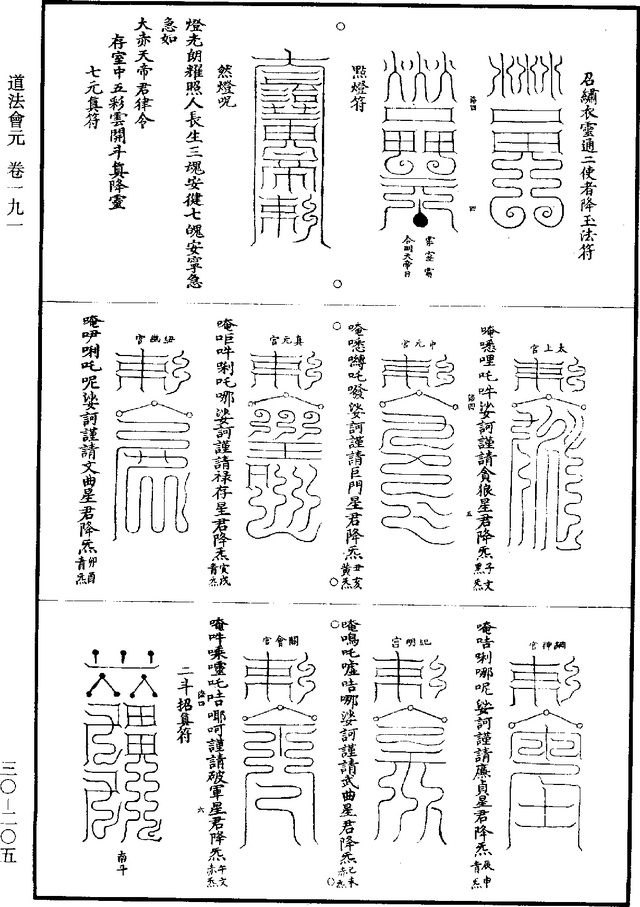 道法會元　卷一九一
三〇―二〇五
召繡衣靈通二使者降玉法符
點燈符
然燈呪
燈光朗耀照人長生三魂安健七魄安寧急
急如
大赤天帝君律令
存室中五彩雲開斗真降靈
七元真符
太上宮
唵悉哩吒吽娑訶謹請貪狼星君降炁
中元宮
唵悉嚩吒發娑訶謹請巨門星君降炁丑亥黃炁
真元宮
唵吽唎吒哪娑訶謹請祿存星君降炁寅戌青炁
紐幽宮
唵吚唎吒呢娑訶謹請文曲星君降炁卯酉青炁
綱神宮
唵咭唎哪呢娑訶謹請廉貞星君降炁辰申青炁
紀明宮
唵嗚吒嚧咭哪娑訶謹請武曲星君降炁巳未赤炁
關會宮
謹請破軍星君降炁午文赤炁
二斗招真符
南斗